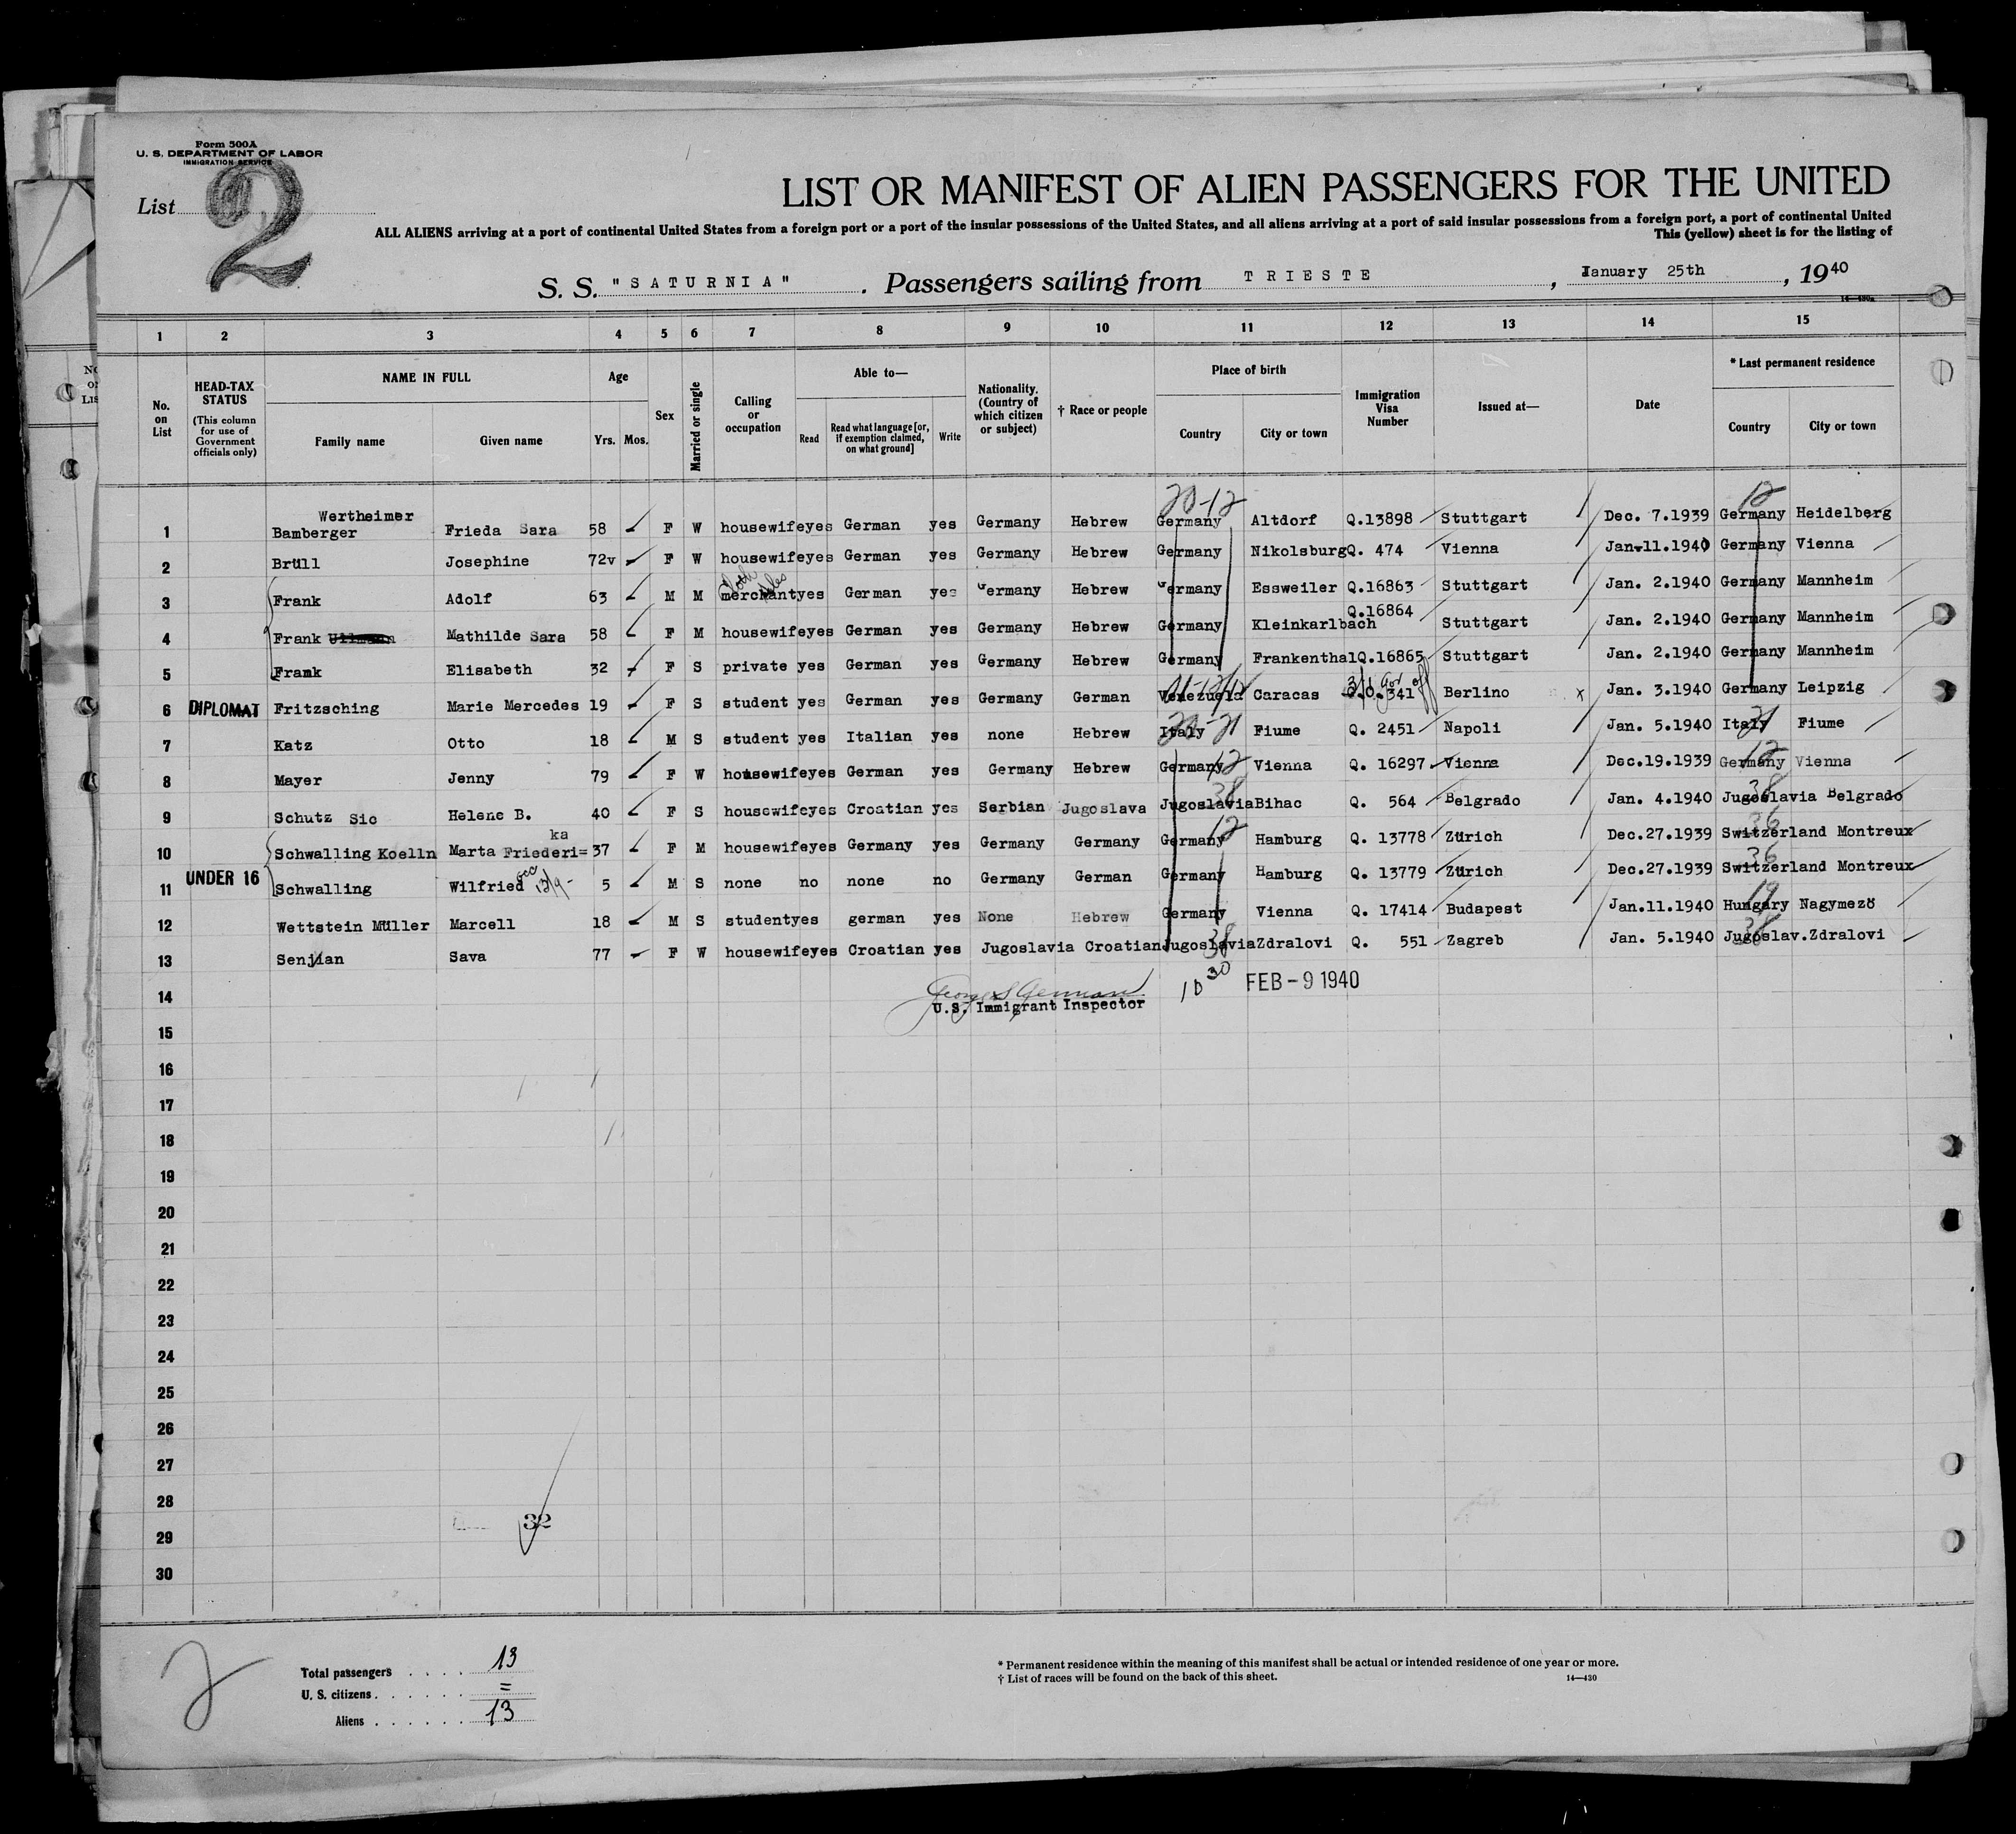 Form 500A
U. S. DEPARTMENT OF LABOR
IMMIGRATION SERVICE
List 2
LIST OR MANIFEST OF ALIEN PASSENGERS FOR THE UNITED
ALL ALIENS arriving at a port of continental United States from a foreign port or a port of the insular possessions of the United States, and all aliens arriving at a port of said insular possessions from a foreign port, a port of continental United
This (yellow) sheet is for the listing of
S. S. "SATURNIA". Passengers sailing from TRIESTE, January 25th, 1940
14—430a
1 2 3 4 5 6 7 8 9 10 11 12 13 14 15
No. on List
HEAD-TAX STATUS
(This column for use of Government officials only)
NAME IN FULL
Family name Given name
Age
Yrs. Mos.
Sex
Married or single
Calling or occupation
Able to—
Read
Read what language [or, if exemption claimed, on what ground]
Write
Nationality. (Country of which citizen or subject)
† Race or people
Place of birth
Country City or town
Immigration Visa Number
Issued at—
Date
* Last permanent residence
Country City or town
20-12 12
Wertheimer
1 Bamberger Frieda Sara 58 F W housewife yes German yes Germany Hebrew Germany Altdorf Q.13898 Stuttgart Dec. 7.1939 Germany Heidelberg
2 Brüll Josephine 72v F W housewife yes German yes Germany Hebrew Germany Nikolsburg Q. 474 Vienna Jan.11.1940 Germany Vienna
3 Frank Adolf 63 M M merchant yes German yes Germany Hebrew Germany Essweiler Q.16863 Stuttgart Jan. 2.1940 Germany Mannheim
4 Frank Ullmann Mathilde Sara 58 F M housewife yes German yes Germany Hebrew Germany Kleinkarlbach Q.16864 Stuttgart Jan. 2.1940 Germany Mannheim
5 Frank Elisabeth 32 F S private yes German yes Germany Hebrew Germany Frankenthal Q.16865 Stuttgart Jan. 2.1940 Germany Mannheim
6 DIPLOMAT Fritzsching Marie Mercedes 19 F S student yes German yes Germany German Venezuela Caracas 341 Berlino x Jan. 3.1940 Germany Leipzig
7 Katz Otto 18 M S student yes Italian yes none Hebrew Italy Fiume Q. 2451 Napoli Jan. 5.1940 Italy Fiume
8 Mayer Jenny 79 F W housewife yes German yes Germany Hebrew Germany 12 Vienna Q. 16297 Vienna Dec.19.1939 Germany 12 Vienna
9 Schutz Sic Helene B. 40 F S housewife yes Croatian yes Serbian Jugoslava Jugoslavia 38 Bihac Q. 564 Belgrado Jan. 4.1940 Jugoslavia 38 Belgrado
10 Schwalling Koelln Marta Friederi=ka 37 F M housewife yes Germany yes Germany Germany Germany 12 Hamburg Q. 13778 Zürich Dec.27.1939 Switzerland 36 Montreux
11 UNDER 16 Schwalling Wilfried 5 M S none no none no Germany German Germany Hamburg Q. 13779 Zürich Dec.27.1939 Switzerland 36 Montreux
12 Wettstein Müller Marcell 18 M S student yes german yes None Hebrew Germany Vienna Q. 17414 Budapest Jan.11.1940 Hungary 19 Nagymezö
13 Senjian Sava 77 F W housewife yes Croatian yes Jugoslavia Croatian Jugoslavia 38 Zdralovi Q. 551 Zagreb Jan. 5.1940 Jugoslav. 38 Zdralovi
14 10 30 FEB - 9 1940
U.S. Immigrant Inspector
15
16
17
18
19
20
21
22
23
24
25
26
27
28
29 32
30
2
Total passengers . . . . 13
U. S. citizens . . . . . . =
Aliens . . . . . . 13
* Permanent residence within the meaning of this manifest shall be actual or intended residence of one year or more.
† List of races will be found on the back of this sheet.
14—430